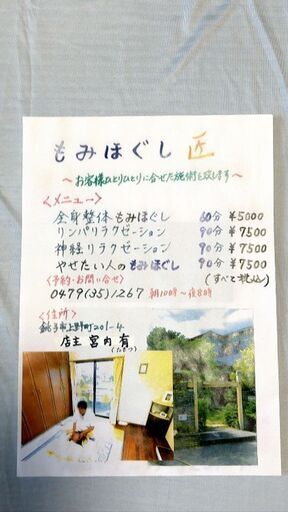 もみほぐし 匠
～お客様ひとりひとりに合せた施術を致します～
＜メニュー＞
全身整体もみほぐし 60分 ¥5000
リンパリラクゼーション 90分 ¥7500
神経リラクゼーション 90分 ¥7500
やせたい人のもみほぐし 90分 ¥7500
＜予約・お問い合せ＞ (すべて税込)
0479(35)1267 朝10時～夜8時
＜住所＞
銚子市上野町201-4
店主 宮内 有